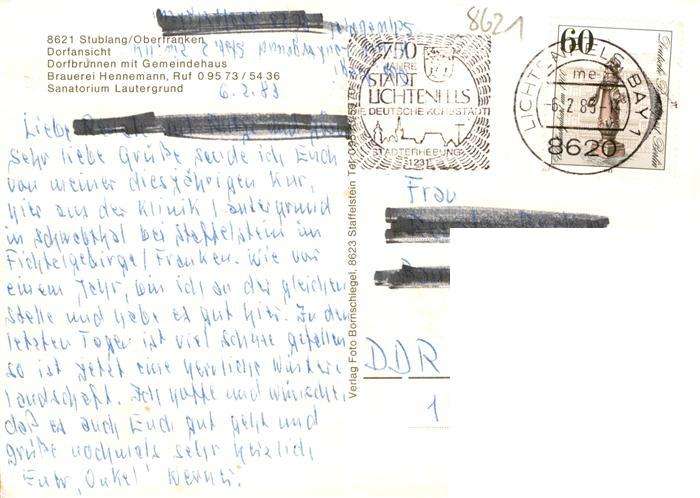 8621
8621 Stublang/Oberfranken
Dorfansicht
Dorfbrunnen mit Gemeindehaus
Brauerei Hennemann, Ruf 0 95 73 / 54 36
Sanatorium Lautergrund
6.2.83
Liebe
sehr liebe Grüße sende ich Euch
von meiner diesjährigen Kur,
hier aus der Klinik Lautergrund
in Schwabthal bei Staffelstein im
Fichtelgebirge/Franken. Wie vor
einem Jahr, bin ich an der gleichen
Stelle und habe es gut hier. In den
letzten Tagen ist viel Schnee gefallen
so ist jetzt eine herrliche Winter-
landschaft. Ich hoffe und wünsche,
daß es auch Euch gut geht und
grüße nochmals sehr herzlich
Euer "Onkel" Werner.
Verlag Foto Bornschlegel, 8623 Staffelstein Tel.
750
JAHRE
STADT
LICHTENFELS
DEUTSCHE KORBSTADT
STADTERHEBUNG
1231
LICHTENFELS, BAY 1
me
-6.2.83
8620
60
Frau
DDR
1